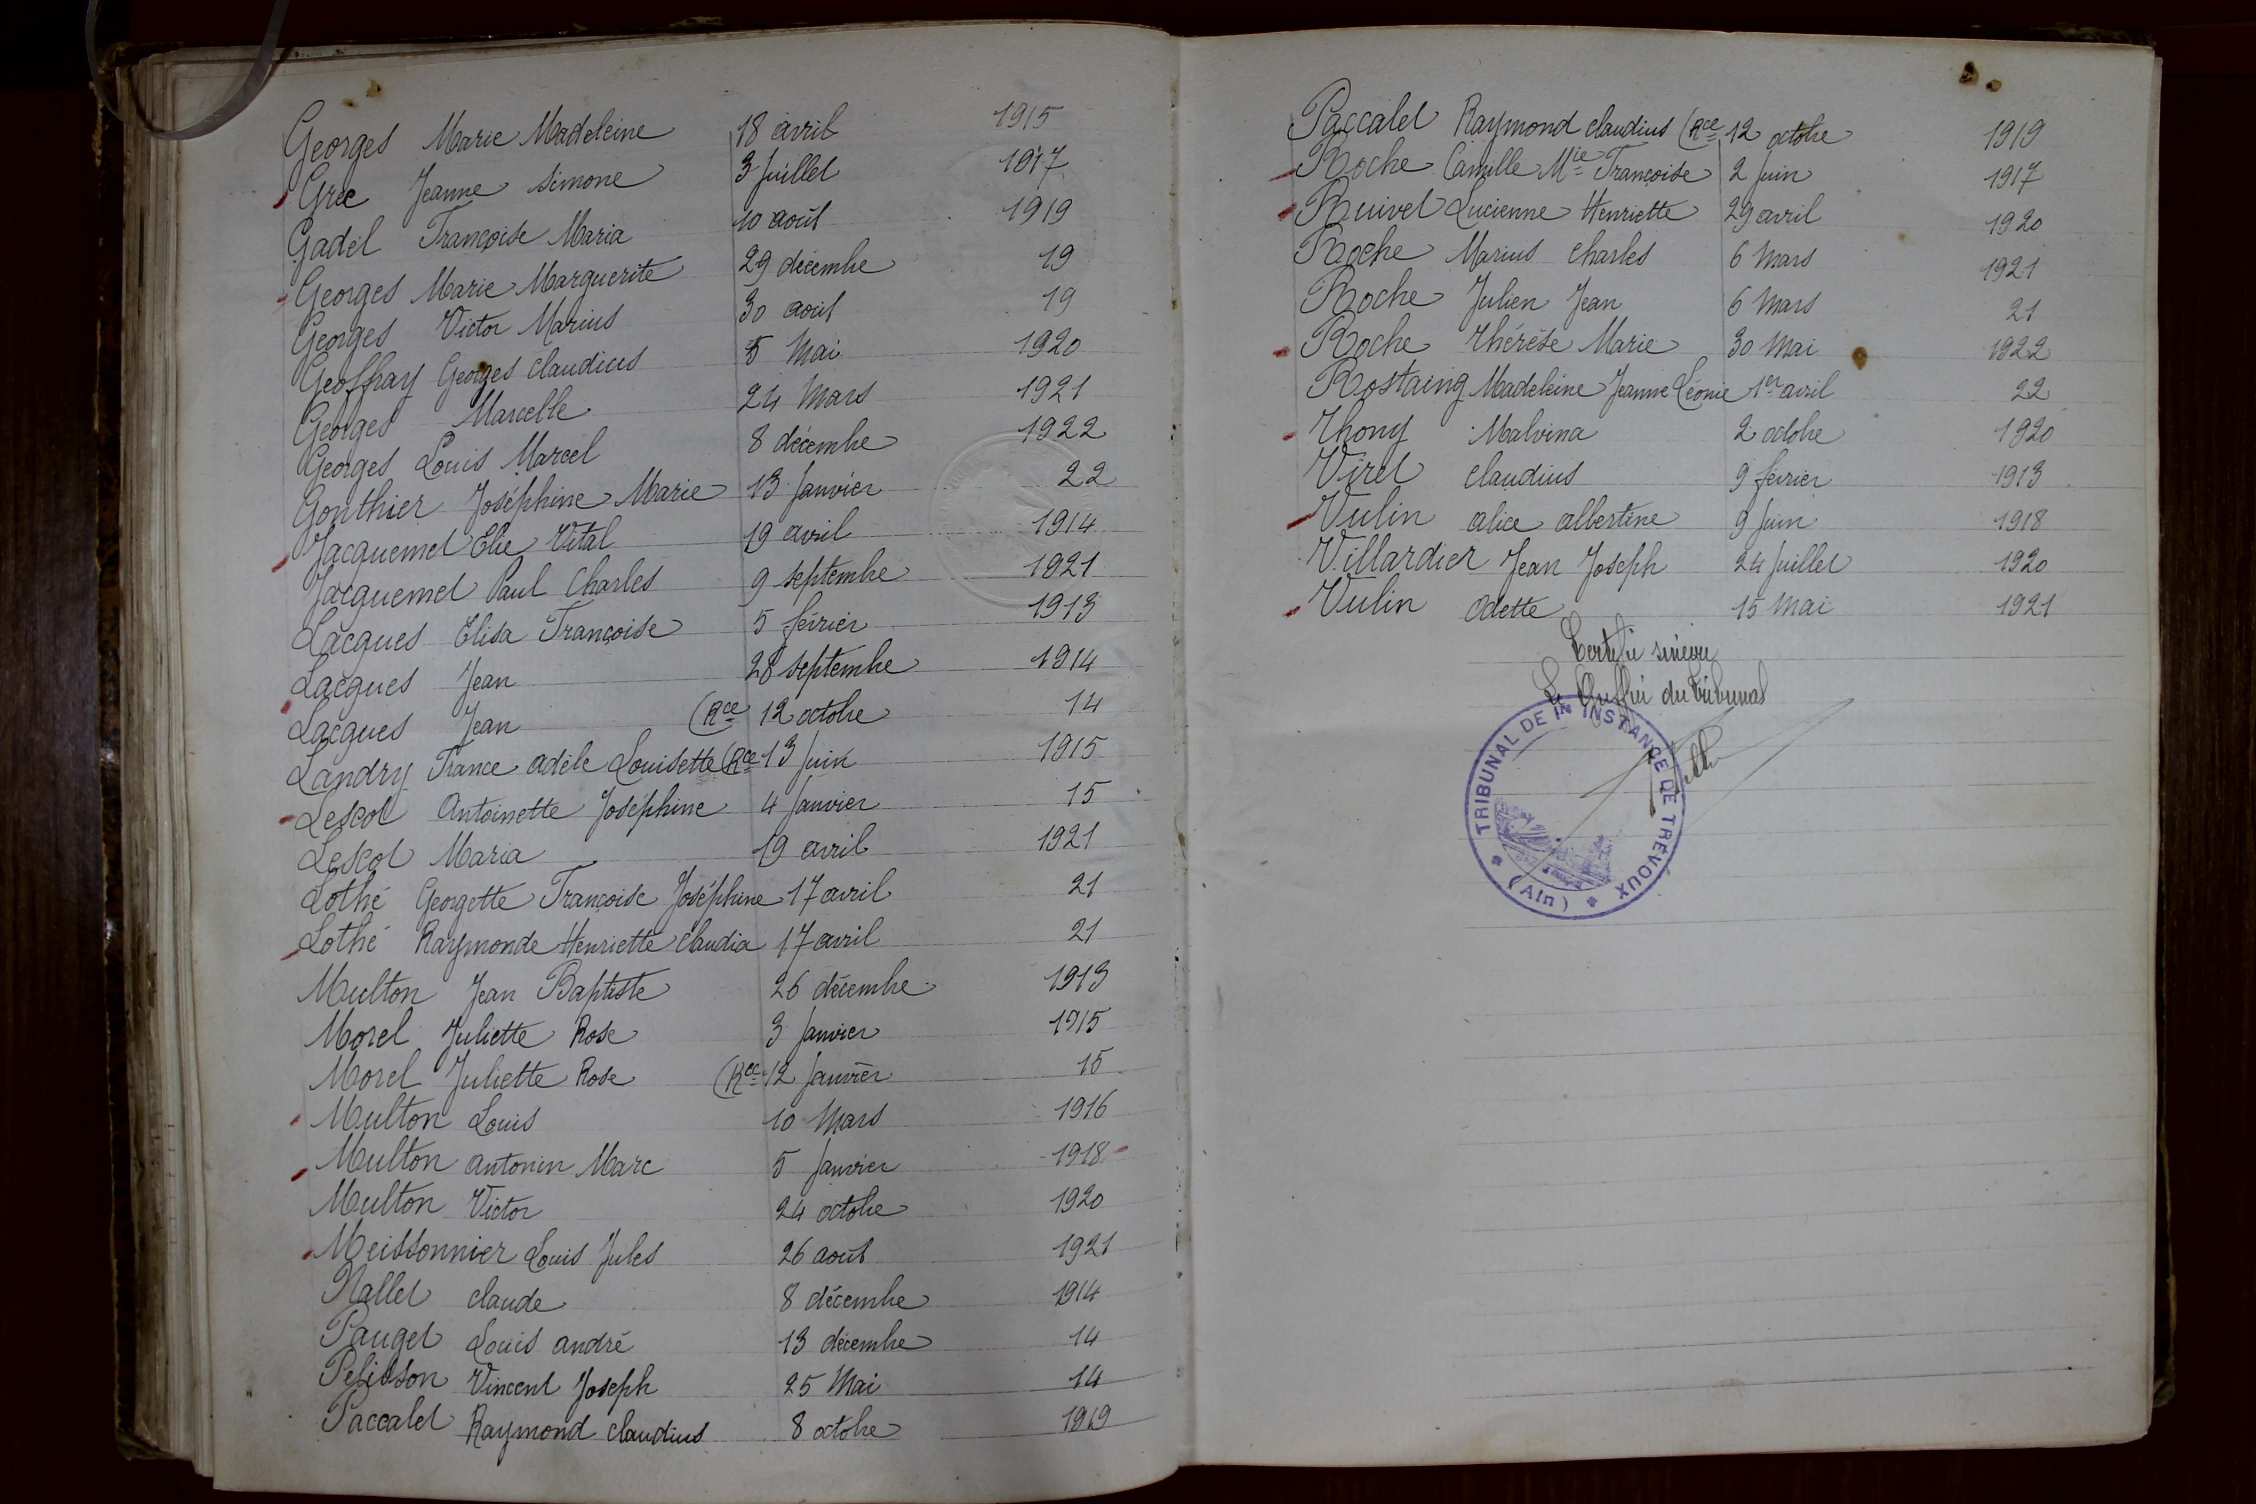 Georges Marie Madeleine 18 avril 1915
Gree Jeanne Simone 3 Juillet 1917
Gadel Françoise Maria 10 août 1919
Georges Marie Marguerite 29 décembre 19
Georges Victor Marius 30 août 19
Geoffray Georges Claudius 5 Mai 1920
Georges Marcelle 24 Mars 1921
Georges Louis Marcel 8 décembre 1922
Gonthier Joséphine Marie 13 Janvier 22
Jacquemet Elie Vital 19 avril 1914
Jacquemet Paul Charles 9 septembre 1921
Lacques Elisa Françoise 5 février 1913
Lacques Jean 28 septembre 1914
Lacques Jean (Rce 12 octobre 14
Landry France adèle Louisette (Rce 13 Juin 1915
Lescot Antoinette Joséphine 4 Janvier 15
Lescot Maria 19 avril 1921
Lothé Georgette Françoise Joséphine 17 avril 21
Lothé Raymonde Henriette Claudia 17 avril 21
Multon Jean Baptiste 26 décembre 1913
Morel Juliette Rose 3 Janvier 1915
Morel Juliette Rose (Rce 12 Janvier 15
Multon Louis 10 Mars 1916
Multon antonin Marc 5 Janvier 1918
Multon Victor 24 octobre 1920
Meissonnier Louis Jules 26 août 1921
Nallet claude 8 décembre 1914
Pauget Louis andré 13 décembre 14
Pelisson Vincent Joseph 25 Mai 14
Paccalet Raymond claudius 8 octobre 1919
Paccalet Raymond claudius (Rce 12 octobre 1919
Roche Camille Mie Françoise 2 Juin 1917
Ruivet Lucienne Henriette 29 avril 1920
Roche Marius Charles 6 Mars 1921
Roche Julien Jean 6 Mars 21
Roche Thérèse Marie 30 Mai 1922
Rostaing Madeleine Jeanne Léonie 1er avril 22
Thony Malvina 2 octobre 1920
Viret claudius 9 février 1913
Vulin alice albertine 9 Juin 1918
Villardier Jean Joseph 24 Juillet 1920
Vulin Odette 15 Mai 1921
Certifié sincère
Le Greffier du Tribunal
TRIBUNAL DE 1re INSTANCE DE TRÉVOUX
(Ain)